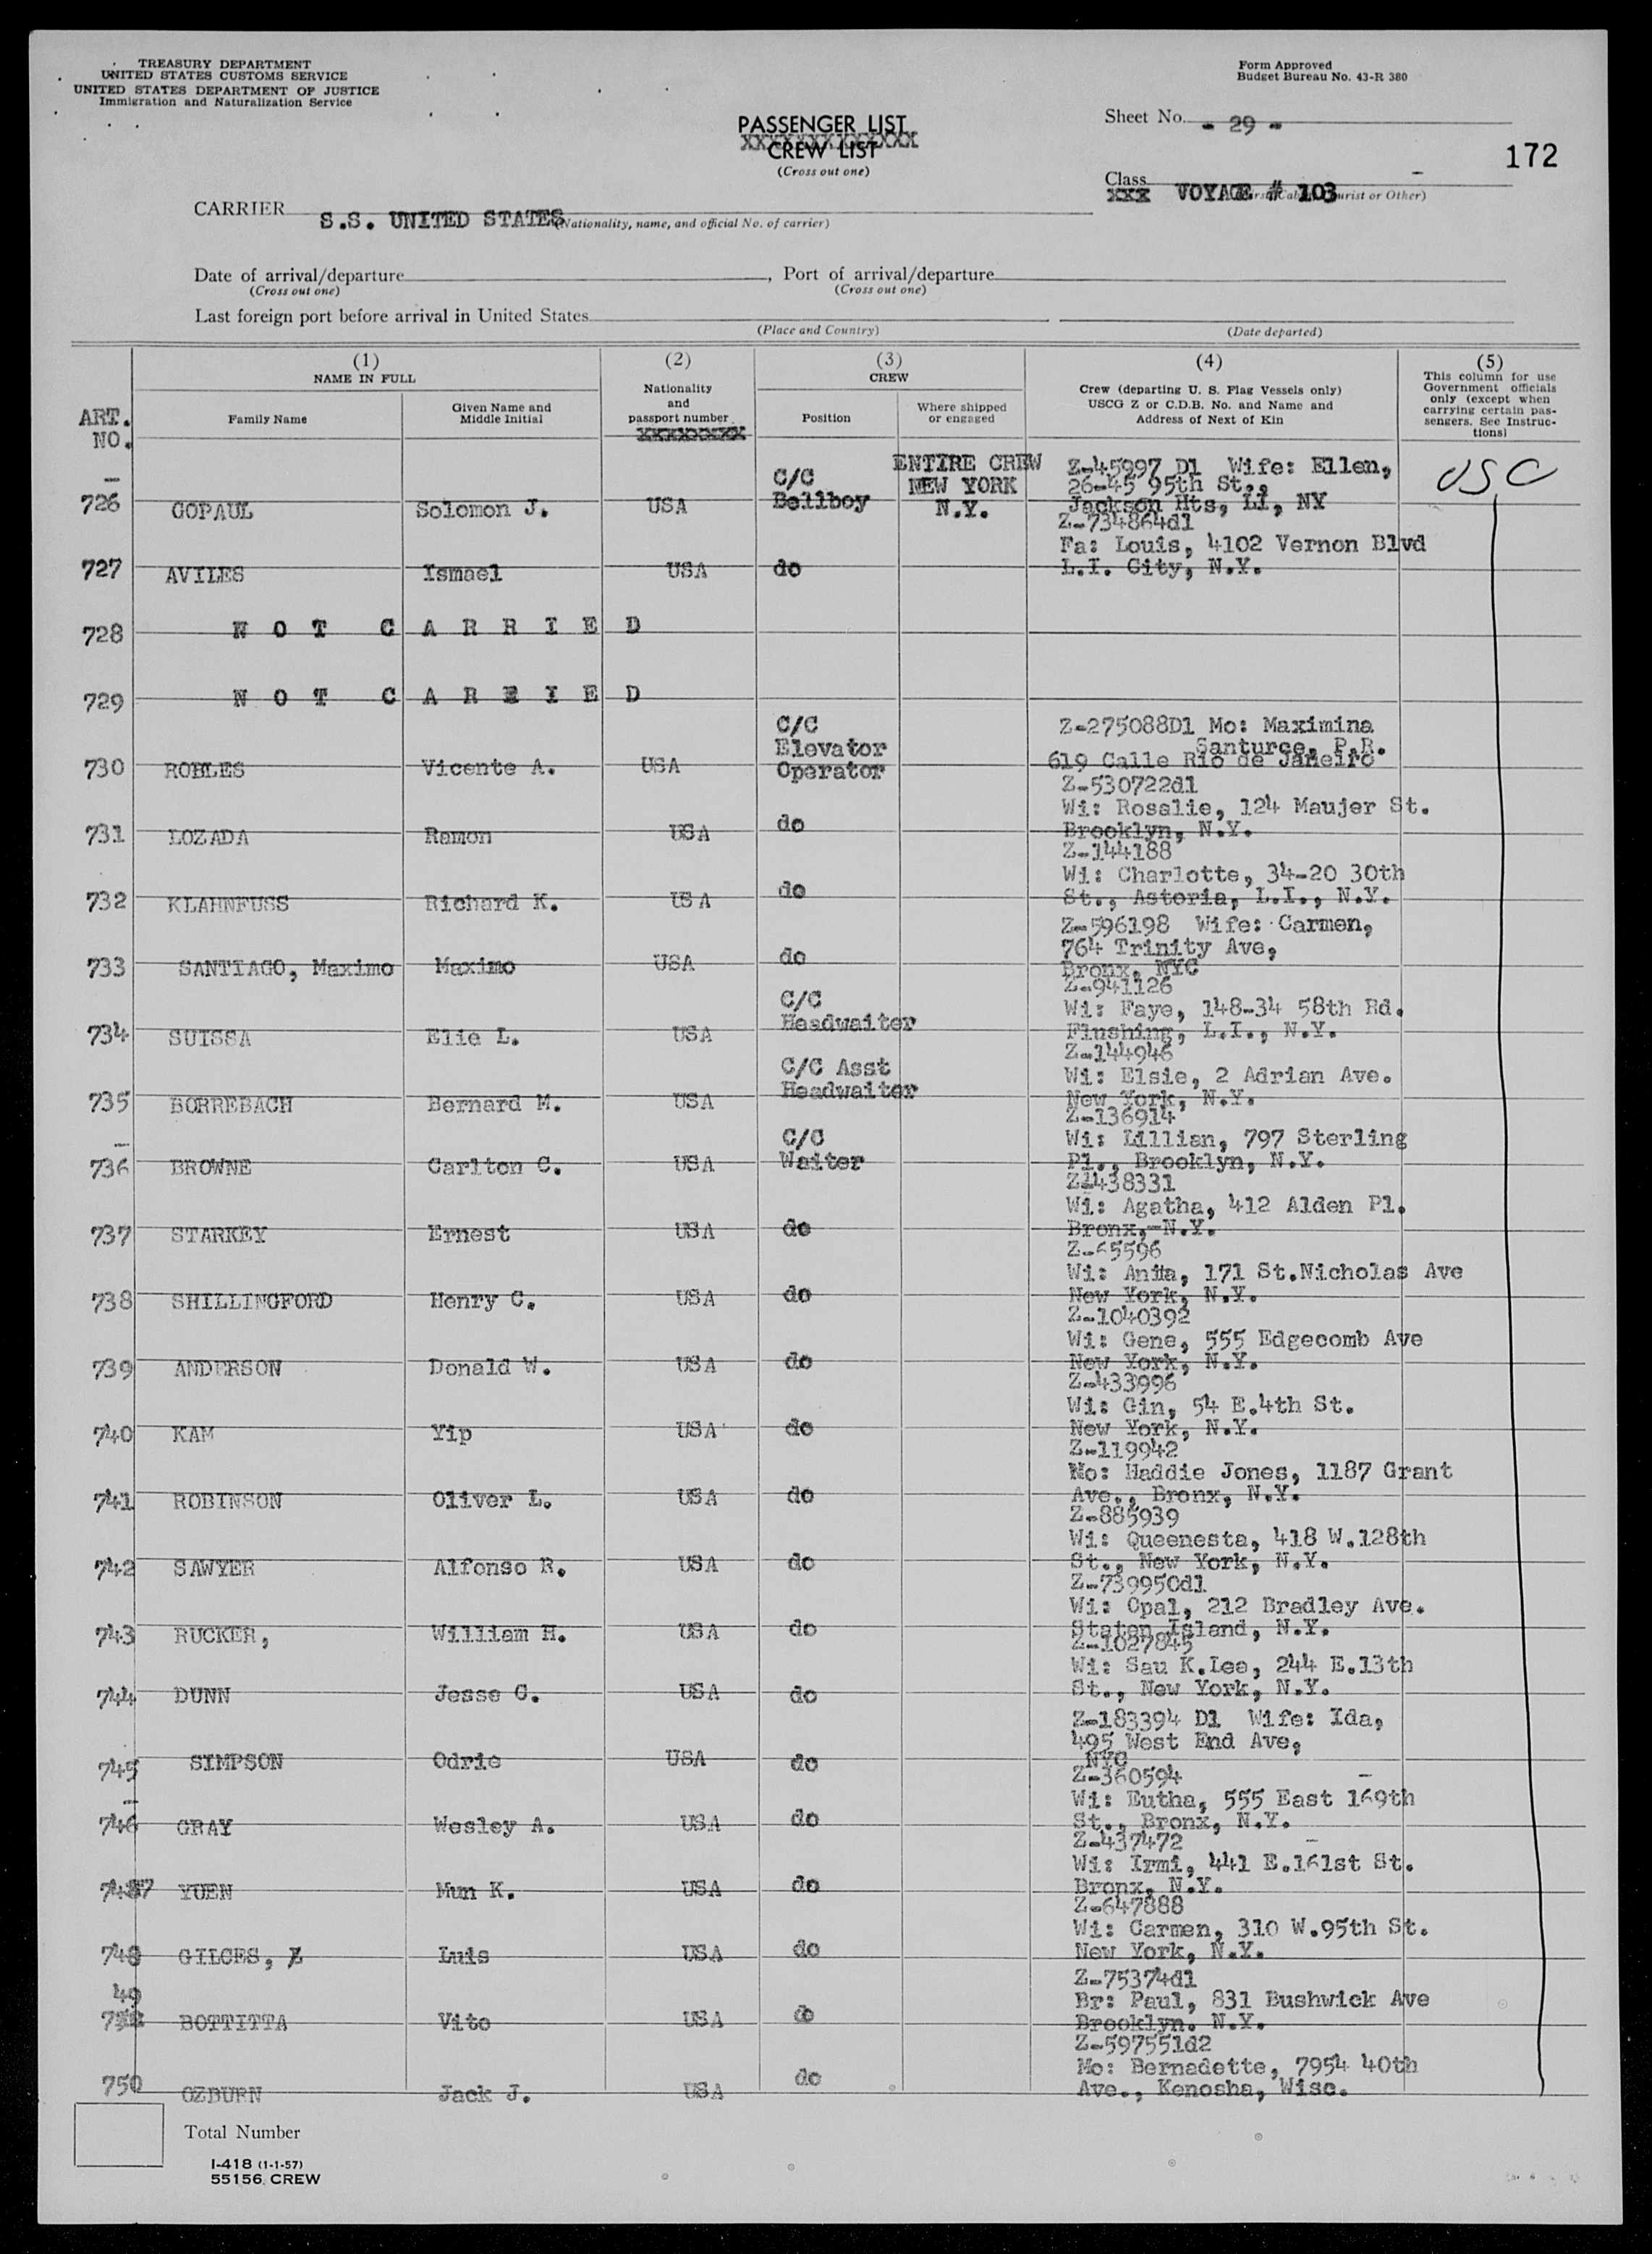 TREASURY DEPARTMENT
UNITED STATES CUSTOMS SERVICE
UNITED STATES DEPARTMENT OF JUSTICE
Immigration and Naturalization Service
Form Approved
Budget Bureau No. 43-R 380
PASSENGER LIST
XXXXXXXXXXXXXX
CREW LIST
(Cross out one)
Sheet No. - 29 -
172
Class
XXX VOYAGE # 103
CARRIER S.S. UNITED STATES (Nationality, name, and official No. of carrier)
Date of arrival/departure , Port of arrival/departure
(Cross out one) (Cross out one)
Last foreign port before arrival in United States
(Place and Country) (Date departed)
(1) (2) (3) (4) (5)
NAME IN FULL
Nationality and passport number
XXXXXXXX
CREW
Crew (departing U. S. Flag Vessels only)
USCG Z or C.D.B. No. and Name and
Address of Next of Kin
This column for use
Government officials
only (except when
carrying certain pas-
sengers. See Instruc-
tions)
ART.
NO.
Family Name
Given Name and
Middle Initial
Position
Where shipped
or engaged
ENTIRE CREW
NEW YORK
N.Y.
USC
726 GOPAUL Solomon J. USA C/C Bellboy
Z-45997 D1 Wife: Ellen,
26-45 95th St.,
Jackson Hts, LI, NY
727 AVILES Ismael USA do
Z-734864d1
Fa: Louis, 4102 Vernon Blvd
L.I. City, N.Y.
728 N O T C A R R I E D
729 N O T C A R R I E D
730 ROBLES Vicente A. USA C/C Elevator Operator
Z-275088D1 Mo: Maximina
Santurce, P.R.
619 Calle Rio de Janeiro
731 LOZADA Ramon USA do
Z-530722d1
Wi: Rosalie, 124 Maujer St.
Brooklyn, N.Y.
732 KLAHNFUSS Richard K. USA do
Z-144188
Wi: Charlotte, 34-20 30th
St., Astoria, L.I., N.Y.
733 SANTIAGO, Maximo Maximo USA do
Z-596198 Wife: Carmen,
764 Trinity Ave,
Bronx, NYC
734 SUISSA Elie L. USA C/C Headwaiter
Z-941126
Wi: Faye, 148-34 58th Rd.
Flushing, L.I., N.Y.
735 BORREBACH Bernard M. USA C/C Asst Headwaiter
Z-144946
Wi: Elsie, 2 Adrian Ave.
New York, N.Y.
736 BROWNE Carlton C. USA C/C Waiter
Z-136914
Wi: Lillian, 797 Sterling
Pl., Brooklyn, N.Y.
737 STARKEY Ernest USA do
Z-438331
Wi: Agatha, 412 Alden Pl.
Bronx, N.Y.
738 SHILLINGFORD Henry C. USA do
Z-65596
Wi: Anita, 171 St.Nicholas Ave
New York, N.Y.
739 ANDERSON Donald W. USA do
Z-1040392
Wi: Gene, 555 Edgecomb Ave
New York, N.Y.
740 KAM Yip USA do
Z-433996
Wi: Gin, 54 E.4th St.
New York, N.Y.
741 ROBINSON Oliver L. USA do
Z-119942
Mo: Haddie Jones, 1187 Grant
Ave., Bronx, N.Y.
742 SAWYER Alfonso R. USA do
Z-885939
Wi: Queenesta, 418 W.128th
St., New York, N.Y.
743 RUCKER, William H. USA do
Z-739950d1
Wi: Opal, 212 Bradley Ave.
Staten Island, N.Y.
744 DUNN Jesse G. USA do
Z-1027845
Wi: Sau K.Lee, 244 E.13th
St., New York, N.Y.
745 SIMPSON Odrie USA do
Z-183394 D1 Wife: Ida,
495 West End Ave,
NYC
746 GRAY Wesley A. USA do
Z-360594
Wi: Eutha, 555 East 169th
St., Bronx, N.Y.
747 YUEN Mun K. USA do
Z-437472
Wi: Irmi, 441 E.161st St.
Bronx, N.Y.
748 GILCES, Luis USA do
Z-647888
Wi: Carmen, 310 W.95th St.
New York, N.Y.
49 BOTTITTA Vito USA do
Z-75374d1
Br: Paul, 831 Bushwick Ave
Brooklyn. N.Y.
750 OZBURN Jack J. USA do
Z-597551d2
Mo: Bernadette, 7954 40th
Ave., Kenosha, Wisc.
Total Number
I-418 (1-1-57)
55156. CREW